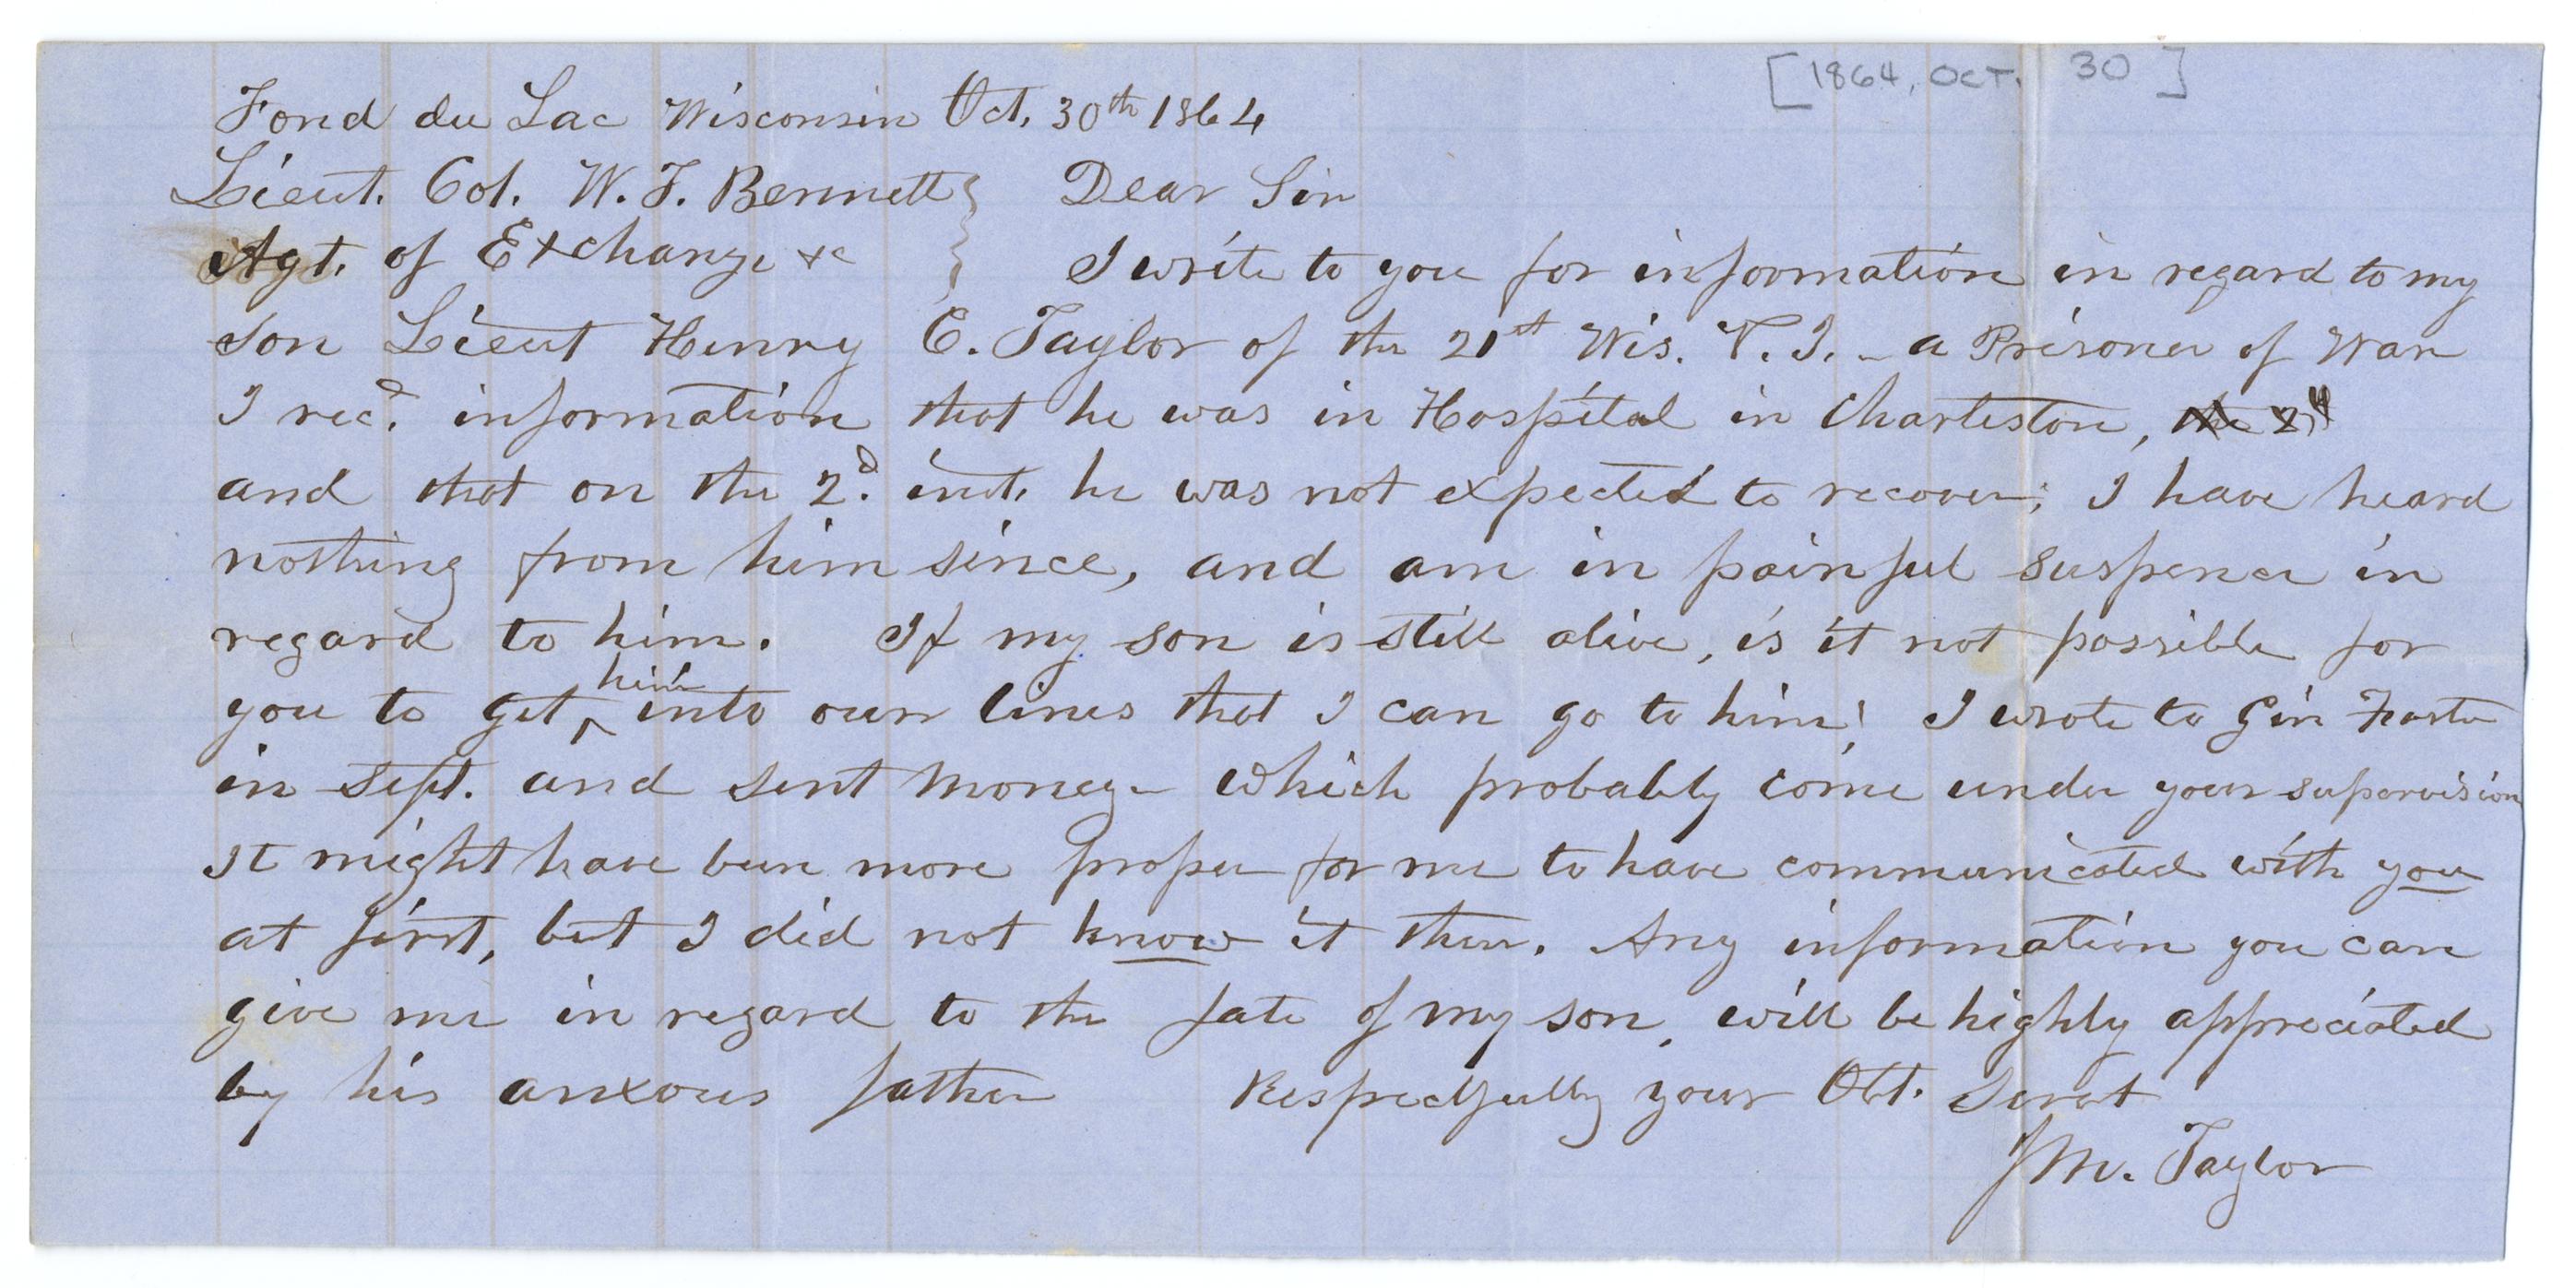 [1864, OCT. 30]
Fond du Lac Wisconsin Oct. 30th 1864
Lieut. Col. W. F. Bennett } Dear Sir
Agt. of Exchange &c } I write to you for information in regard to my
son Lieut Henry C. Taylor of the 21st Wis. V. I. - a Prisoner of War
I recd. information that he was in Hospital in Charleston, the 2d
and that on the 2d. inst. he was not expected to recover; I have heard
nothing from him since, and am in painful suspence in
regard to him. If my son is still alive, is it not possible for
you to get ^him into our lines that I can go to him! I wrote to Gen Foster
in Sept. and sent money - which probably come under your supervision
It might have been more proper for me to have communicated with you
at first, but I did not know it then. Any information you can
give me in regard to the fate of my son, will be highly appreciated
by his anxous father Respectfully your Obt. Servt
J M. Taylor